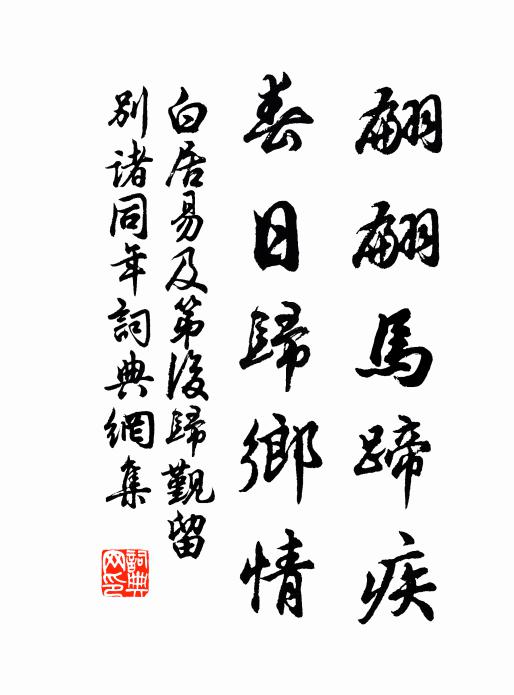 翩翩馬蹄疾
春日歸鄉情
白居易及第後歸覲留
別諸同年詞典網集
詞典网印